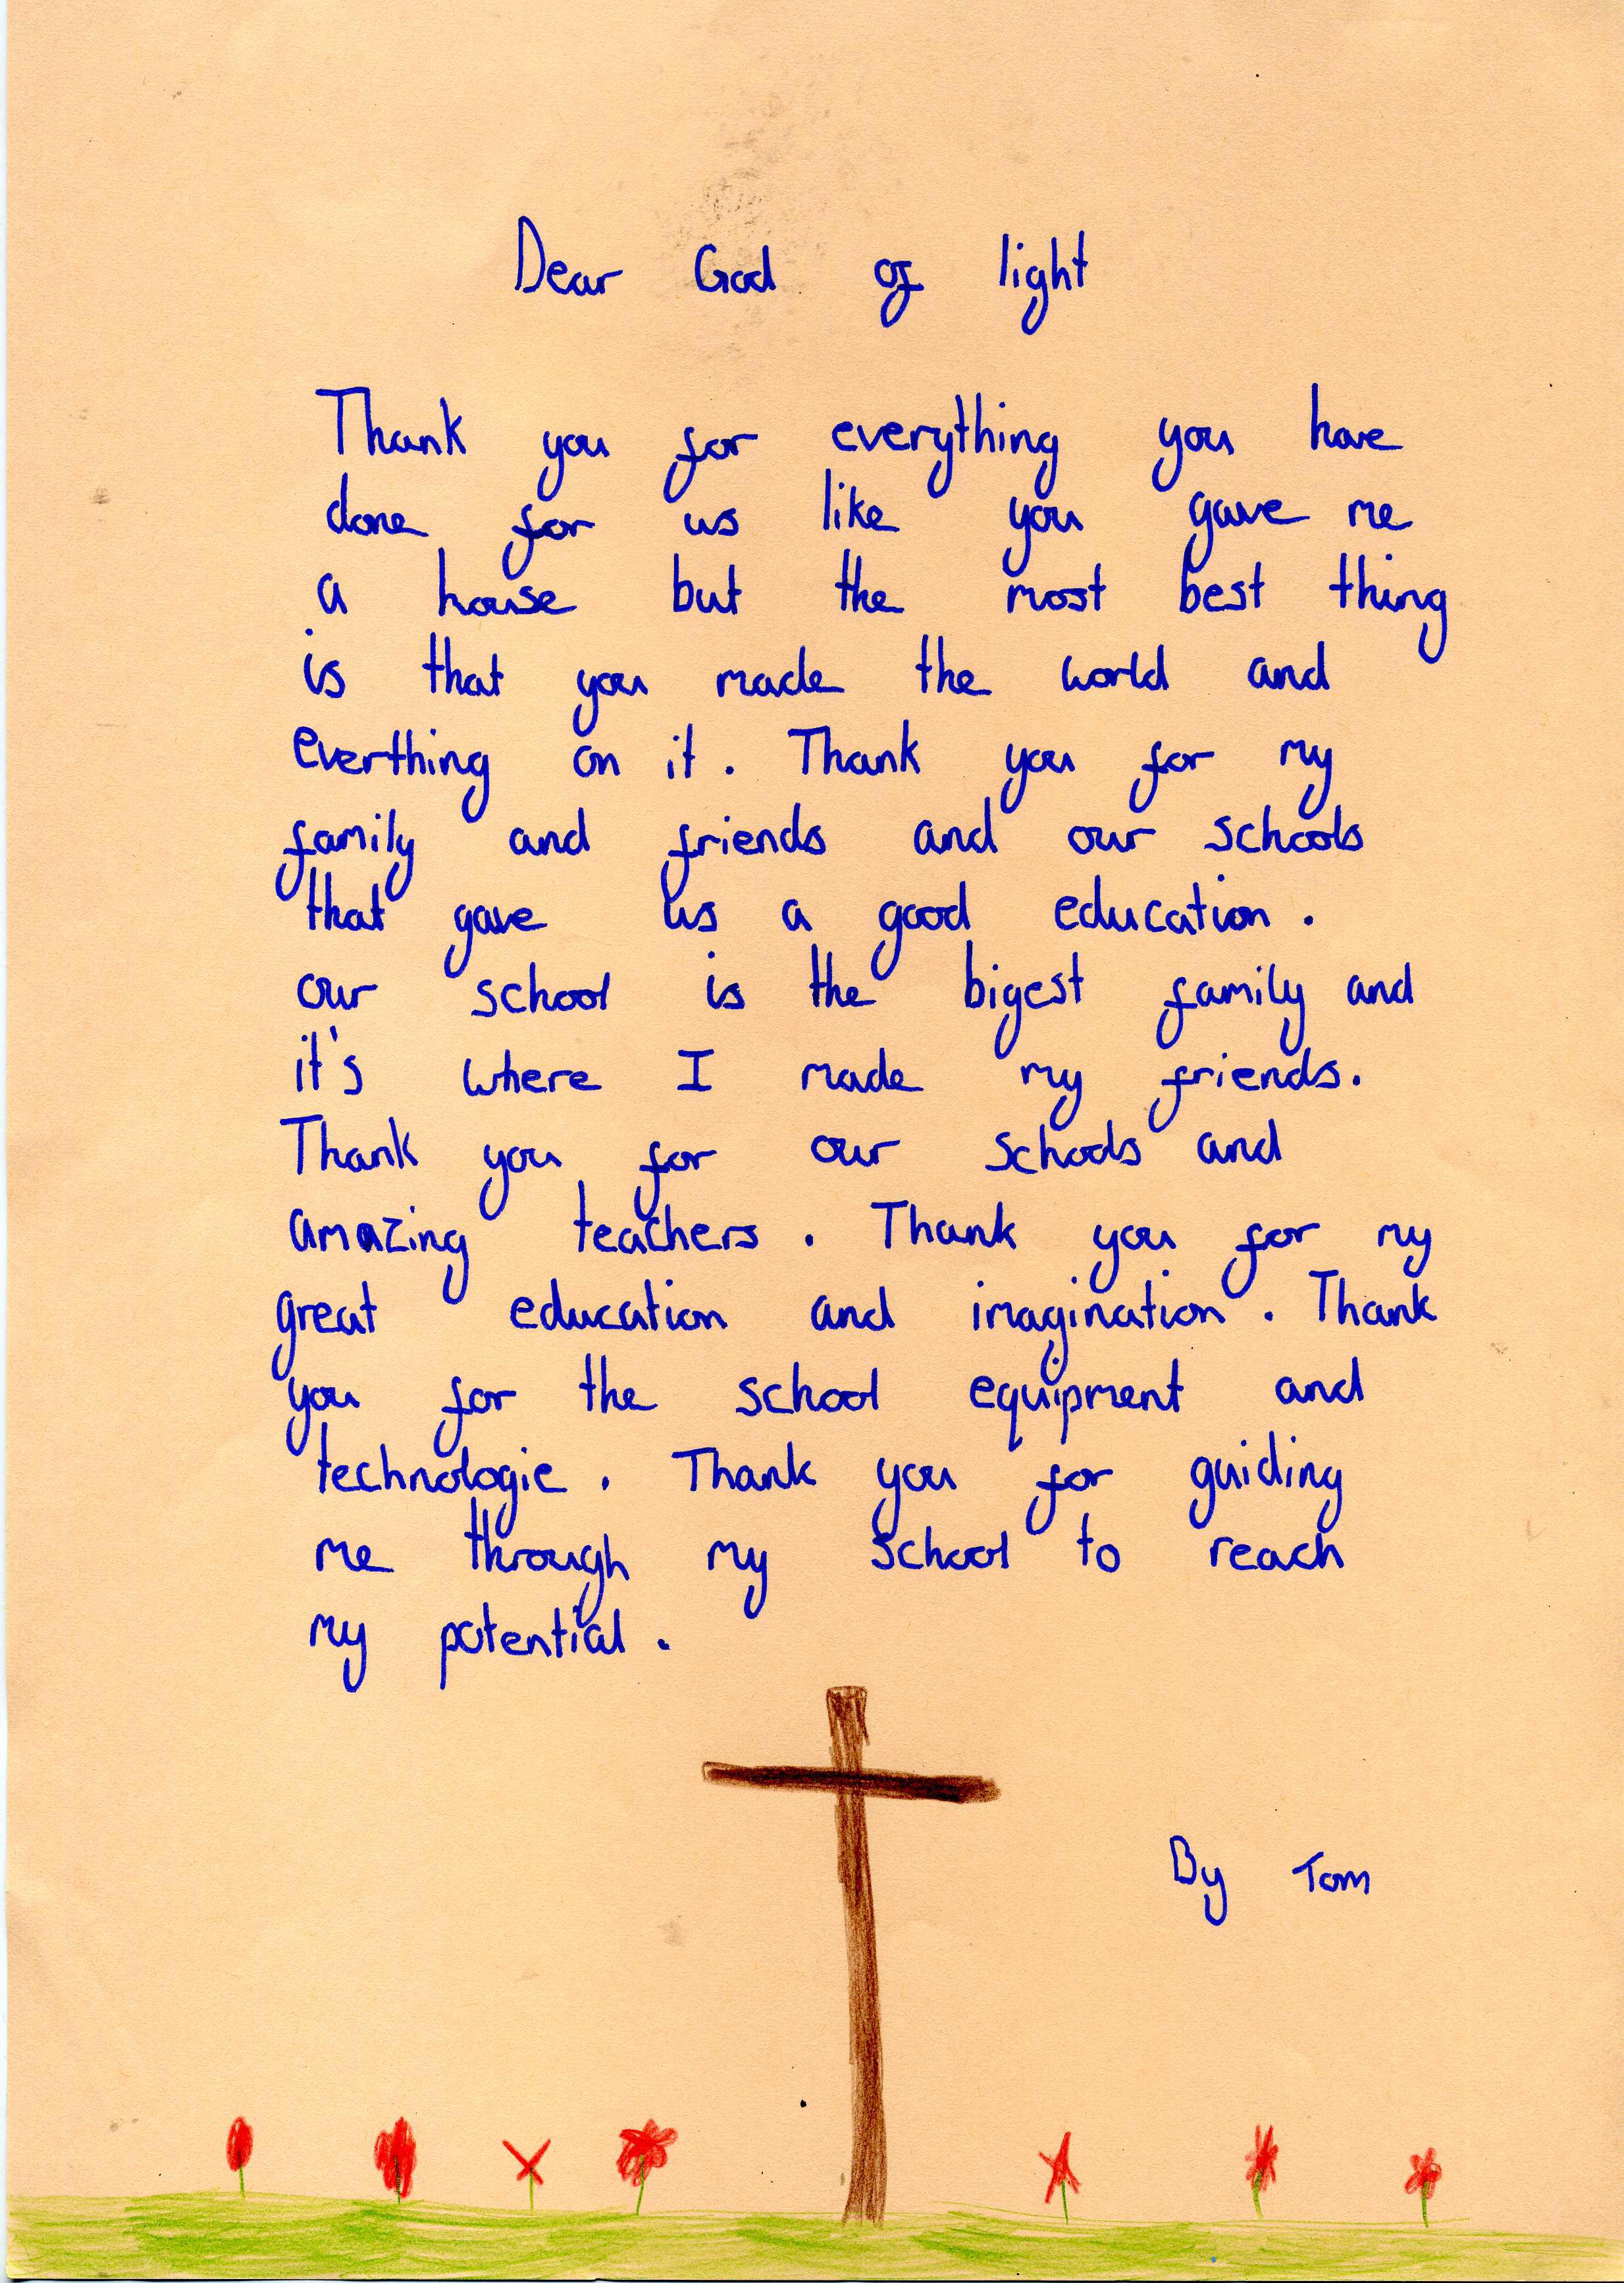 Dear God of light
Thank you for everything you have
done for us like you gave me
a house but the most best thing
is that you made the world and
everthing on it. Thank you for my
family and friends and our schools
that gave us a good education.
our school is the bigest family and
it's where I made my friends.
Thank you for our schools and
amazing teachers. Thank you for my
great education and imagination. Thank
you for the school equipment and
technologie. Thank you for guiding
me through my school to reach
my potential.
By Tom